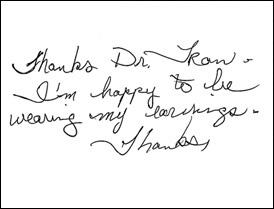 Thanks Dr. Tkon.
I'm happy to be
wearing my earrings.
Thanks,